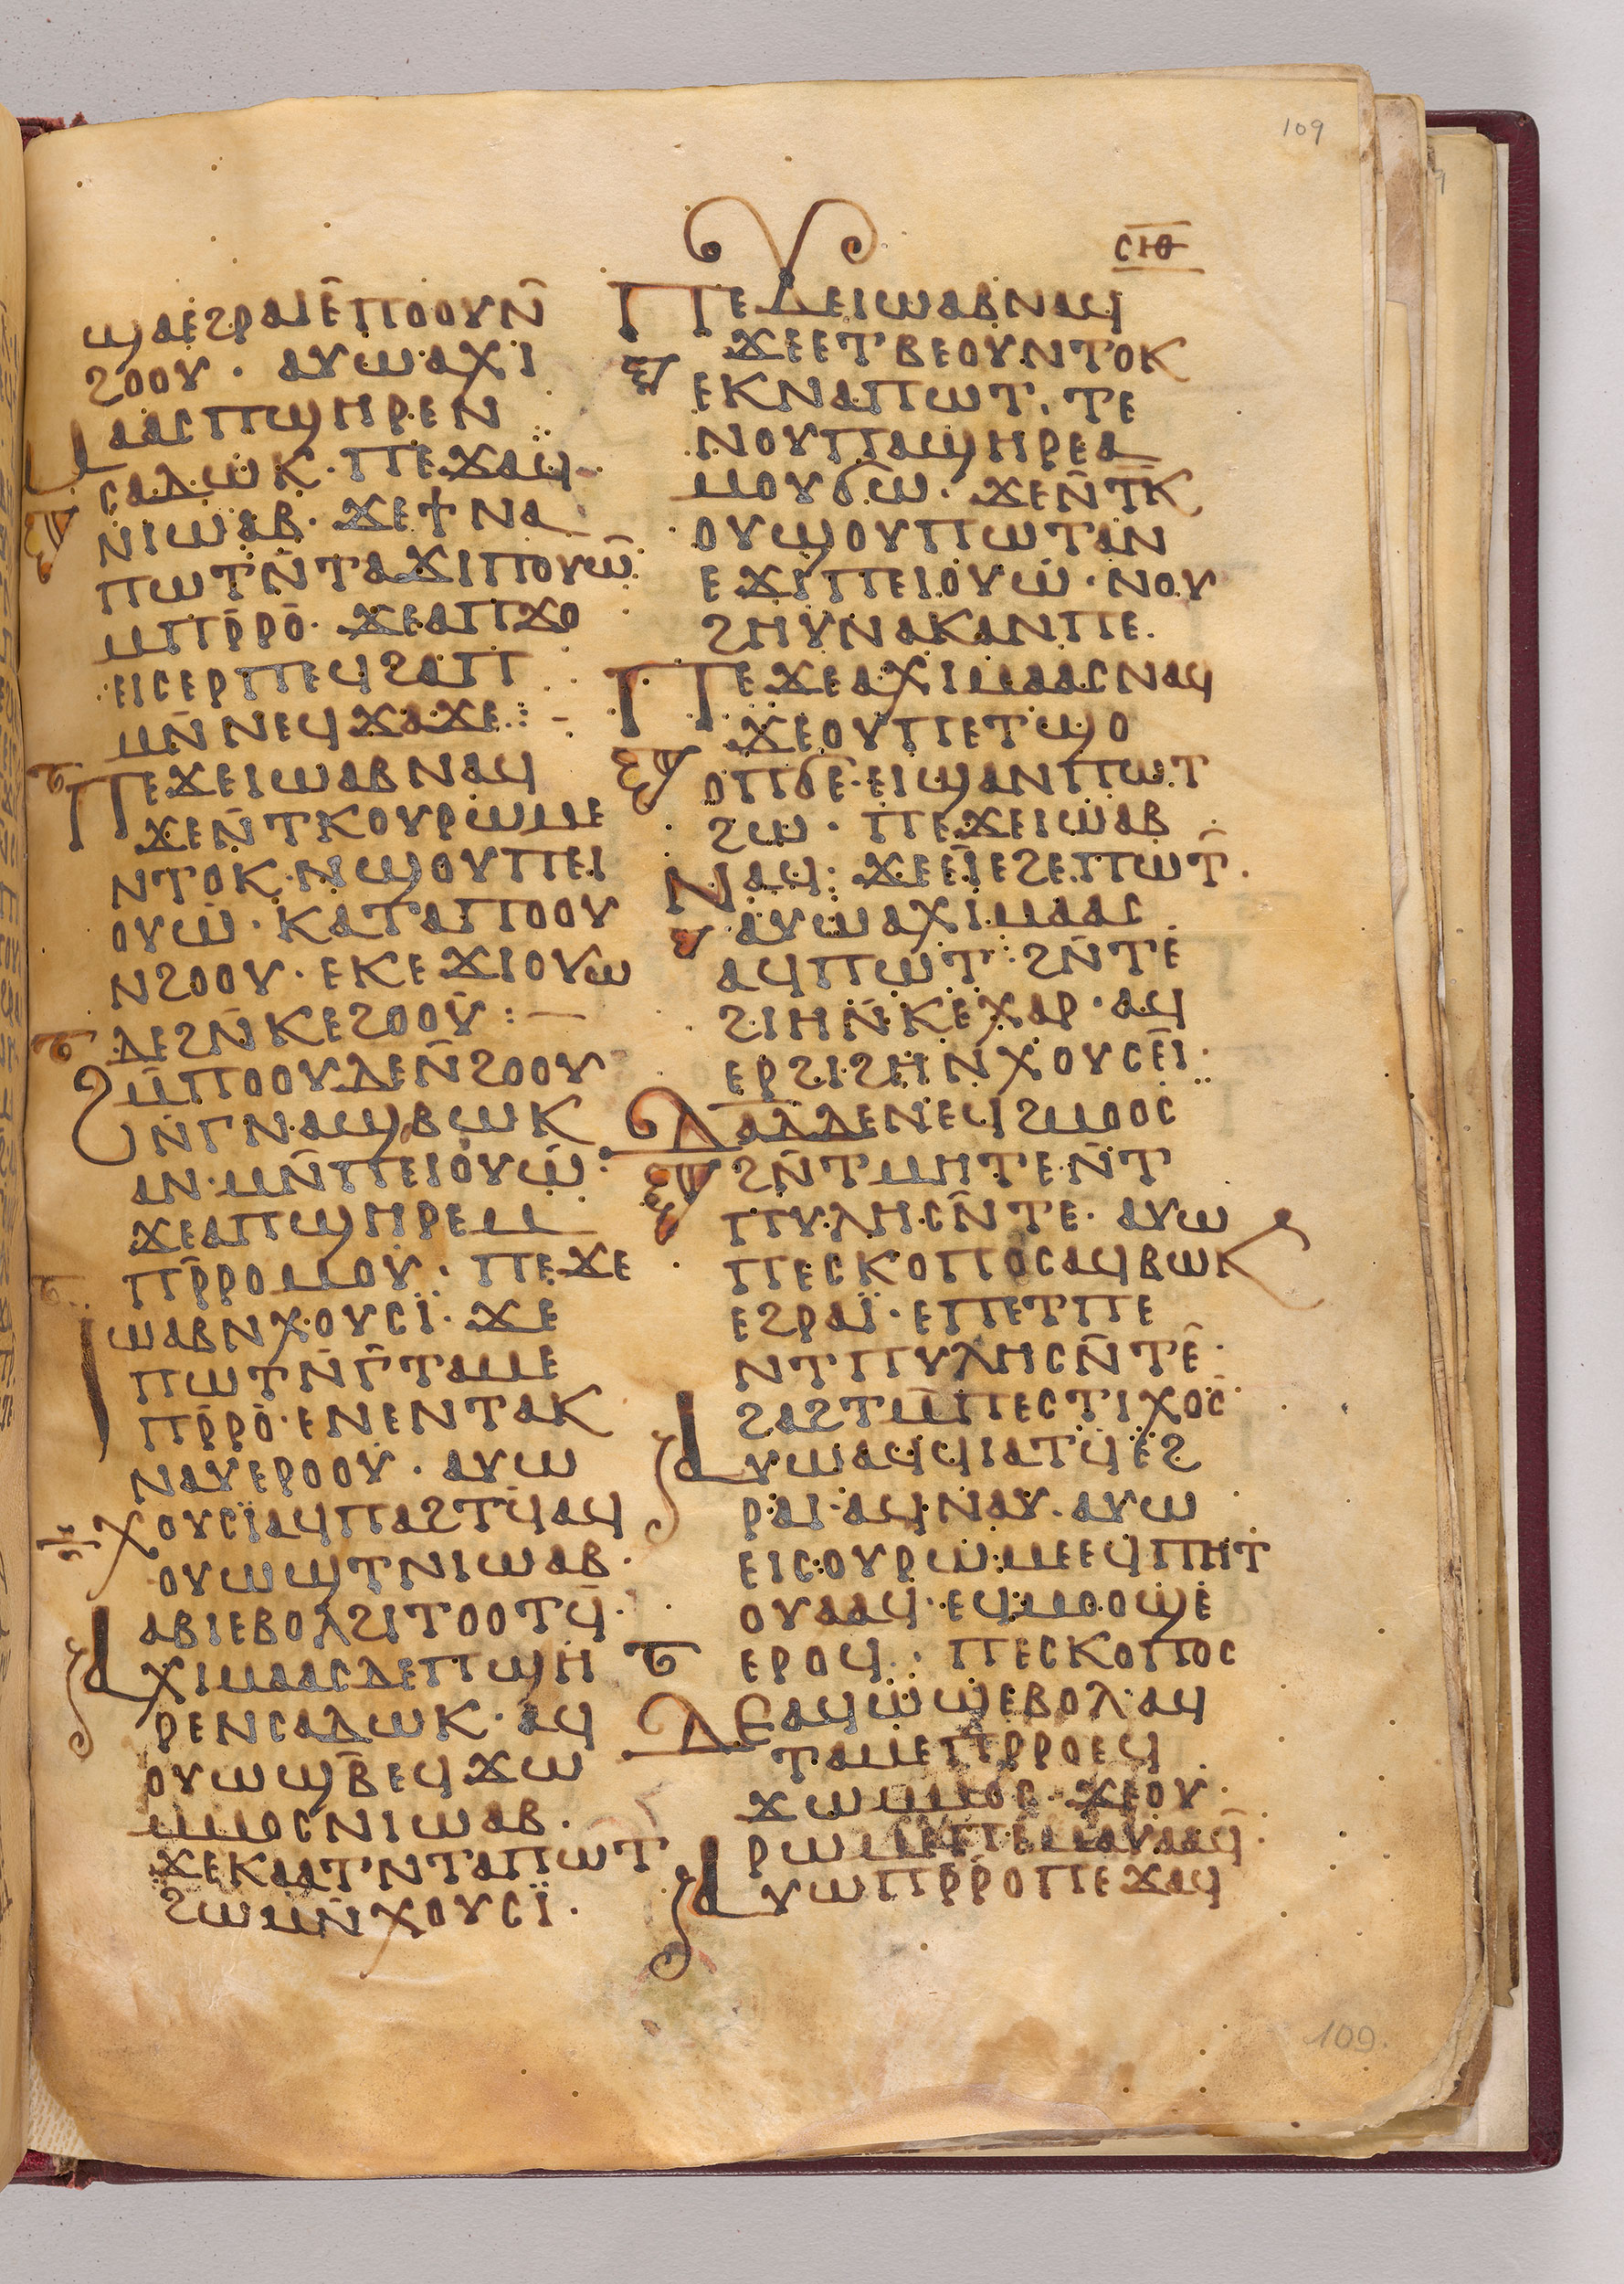 109
ⲥⲓⲑ
ϣⲁⲉϩⲣⲁⲓⲉ̄ⲡⲟⲟⲩⲛ̄
ϩⲟⲟⲩ · ⲁⲩⲱⲁⲭⲓ
ⲙⲁⲁⲥⲡϣⲏⲣⲉⲛ
ⲥⲁⲇⲱⲕ · ⲡⲉϫⲁϥ
ⲛⲓⲱⲁⲃ · ϫⲉϯⲛⲁ
ⲡⲱⲧⲛ̄ⲧⲁϫⲓⲡⲟⲩⲱ̄
ⲙⲡⲣ̄ⲣⲟ · ϫⲉⲁⲡϫⲟ
ⲉⲓⲥⲉⲣⲡⲉϥϩⲁⲡ
ⲙⲛ̄ⲛⲉϥϫⲁϫⲉ : –
ⲡⲉϫⲉⲓⲱⲁⲃⲛⲁϥ
ϫⲉⲛ̄ⲧⲕⲟⲩⲣⲱⲙⲉ
ⲛⲧⲟⲕ · ⲛϣⲟⲩⲡⲉⲓ
ⲟⲩⲱ · ⲕⲁⲧⲁⲡⲟⲟⲩ
ⲛϩⲟⲟⲩ · ⲉⲕⲉϫⲓⲟⲩⲱ
ⲇⲉϩⲛ̄ⲕⲉϩⲟⲟⲩ : –
ϩⲙ̄ⲡⲟⲟⲩⲇⲉⲛ̄ϩⲟⲟⲩ
ⲛⲅⲛⲁϣⲃⲱⲕ
ⲁⲛ · ⲙⲛ̄ⲡⲉⲓⲟⲩⲱ ·
ϫⲉⲁⲡϣⲏⲣⲉⲙ
ⲡⲣ̄ⲣⲟⲙⲟⲩ · ⲡⲉϫⲉ
ⲓⲱⲁⲃⲛⲭⲟⲩⲥⲓ̈ · ϫⲉ
ⲡⲱⲧⲛ̄ⲅ̄ⲧⲁⲙⲉ
ⲡⲣ̄ⲣⲟ · ⲉⲛⲉⲛⲧⲁⲕ
ⲛⲁⲩⲉⲣⲟⲟⲩ · ⲁⲩⲱ
ⲭⲟⲩⲥⲓ̈ⲁϥⲡⲁϩⲧϥ̄ⲁϥ
ⲟⲩⲱϣⲧⲛⲓⲱⲁⲃ ·
ⲁⲃⲓⲉⲃⲟⲗϩⲓⲧⲟⲟⲧϥ̄ ·
ⲁⲭⲓⲙⲁⲁⲥⲇⲉⲡϣⲏ
ⲣⲉⲛⲥⲁⲇⲱⲕ · ⲁϥ
ⲟⲩⲱϣⲃ̄ⲉϥϫⲱ
ⲙⲙⲟⲥⲛⲓⲱⲁⲃ ·
ϫⲉⲕⲁⲁⲧⲛⲧⲁⲡⲱⲧ
ϩⲱⲙⲛ̄ⲭⲟⲩⲥⲓ̈ ·
ⲡⲉϫⲉⲓⲱⲁⲃⲛⲁϥ
ϫⲉⲉⲧⲃⲉⲟⲩⲛⲧⲟⲕ
ⲉⲕⲛⲁⲡⲱⲧ · ⲧⲉ
ⲛⲟⲩⲡⲁϣⲏⲣⲉⲁ
ⲙⲟⲩϭⲱ · ϫⲉⲛ̄ⲧ̄ⲕ
ⲟⲩϣⲟⲩⲡⲱⲧⲁⲛ
ⲉϫⲓⲡⲉⲓⲟⲩⲱ · ⲛⲟⲩ
ϩⲏⲩⲛⲁⲕⲁⲛⲡⲉ ·
ⲡⲉϫⲉⲁⲭⲓⲙⲁⲁⲥⲛⲁϥ
ϫⲉⲟⲩⲡⲉⲧϣⲟ
ⲟⲡϭⲉ · ⲉⲓϣⲁⲛⲡⲱⲧ
ϩⲱ · ⲡⲉϫⲉⲓⲱⲁⲃ
ⲛⲁϥ : ϫⲉⲉⲓⲉϩⲉⲡⲱⲧ̄ ·
ⲁⲩⲱⲁⲭⲓⲙⲁⲁⲥ
ⲁϥⲡⲱⲧ : ϩⲛ̄ⲧⲉ
ϩⲓⲏⲛ̄ⲕⲉⲭⲁⲣ · ⲁϥ
ⲉⲣϩⲓϩⲏⲛⲭⲟⲩⲥⲉⲓ̄ ·
ⲇⲁⲇⲇⲉⲛⲉϥϩⲙⲟⲟⲥ
ϩⲛ̄ⲧⲙⲏⲧⲉⲛ̄ⲧ
ⲡⲩⲗⲏⲥⲛ̄ⲧⲉ · ⲁⲩⲱ
ⲡⲉⲥⲕⲟⲡⲟⲥⲁϥⲃⲱⲕ
ⲉϩⲣⲁⲓ̈ · ⲉⲡⲉⲧⲡⲉ
ⲛⲧⲡⲩⲗⲏⲥⲛ̄ⲧⲉ̄ ·
ϩⲁϩⲧⲙ̄ⲡⲉⲥⲧⲓⲭⲟⲥ
ⲁⲩⲱⲁϥϥⲓⲁⲧϥ̄ⲉϩ
ⲣⲁⲓ · ⲁϥⲛⲁⲩ · ⲁⲩⲱ
ⲉⲓⲥⲟⲩⲣⲱⲙⲉⲉϥⲡⲏⲧ
ⲟⲩⲁⲁϥ · ⲉϥⲙⲟⲟϣⲉ
ⲉⲣⲟϥ · ⲡⲉⲥⲕⲟⲡⲟⲥ
ⲇⲉⲁϥⲱϣⲉⲃⲟⲗ · ⲁϥ
ⲧⲁⲙⲉⲡⲣ̄ⲣⲟⲉϥ
ϫⲱⲙⲙⲟⲥ · ϫⲉⲟⲩ ·
ⲣⲱⲙⲉⲡⲉⲙⲁⲩⲁⲁϥ̄ ·
ⲁⲩⲱⲡⲣ̄ⲣⲟⲡⲉϫⲁϥ
109.